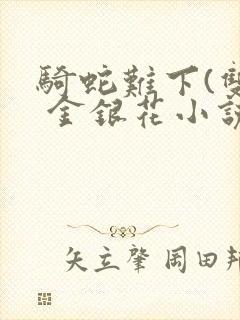 騎蛇難下(雙
金銀花小說
矢立肇 岡田邦